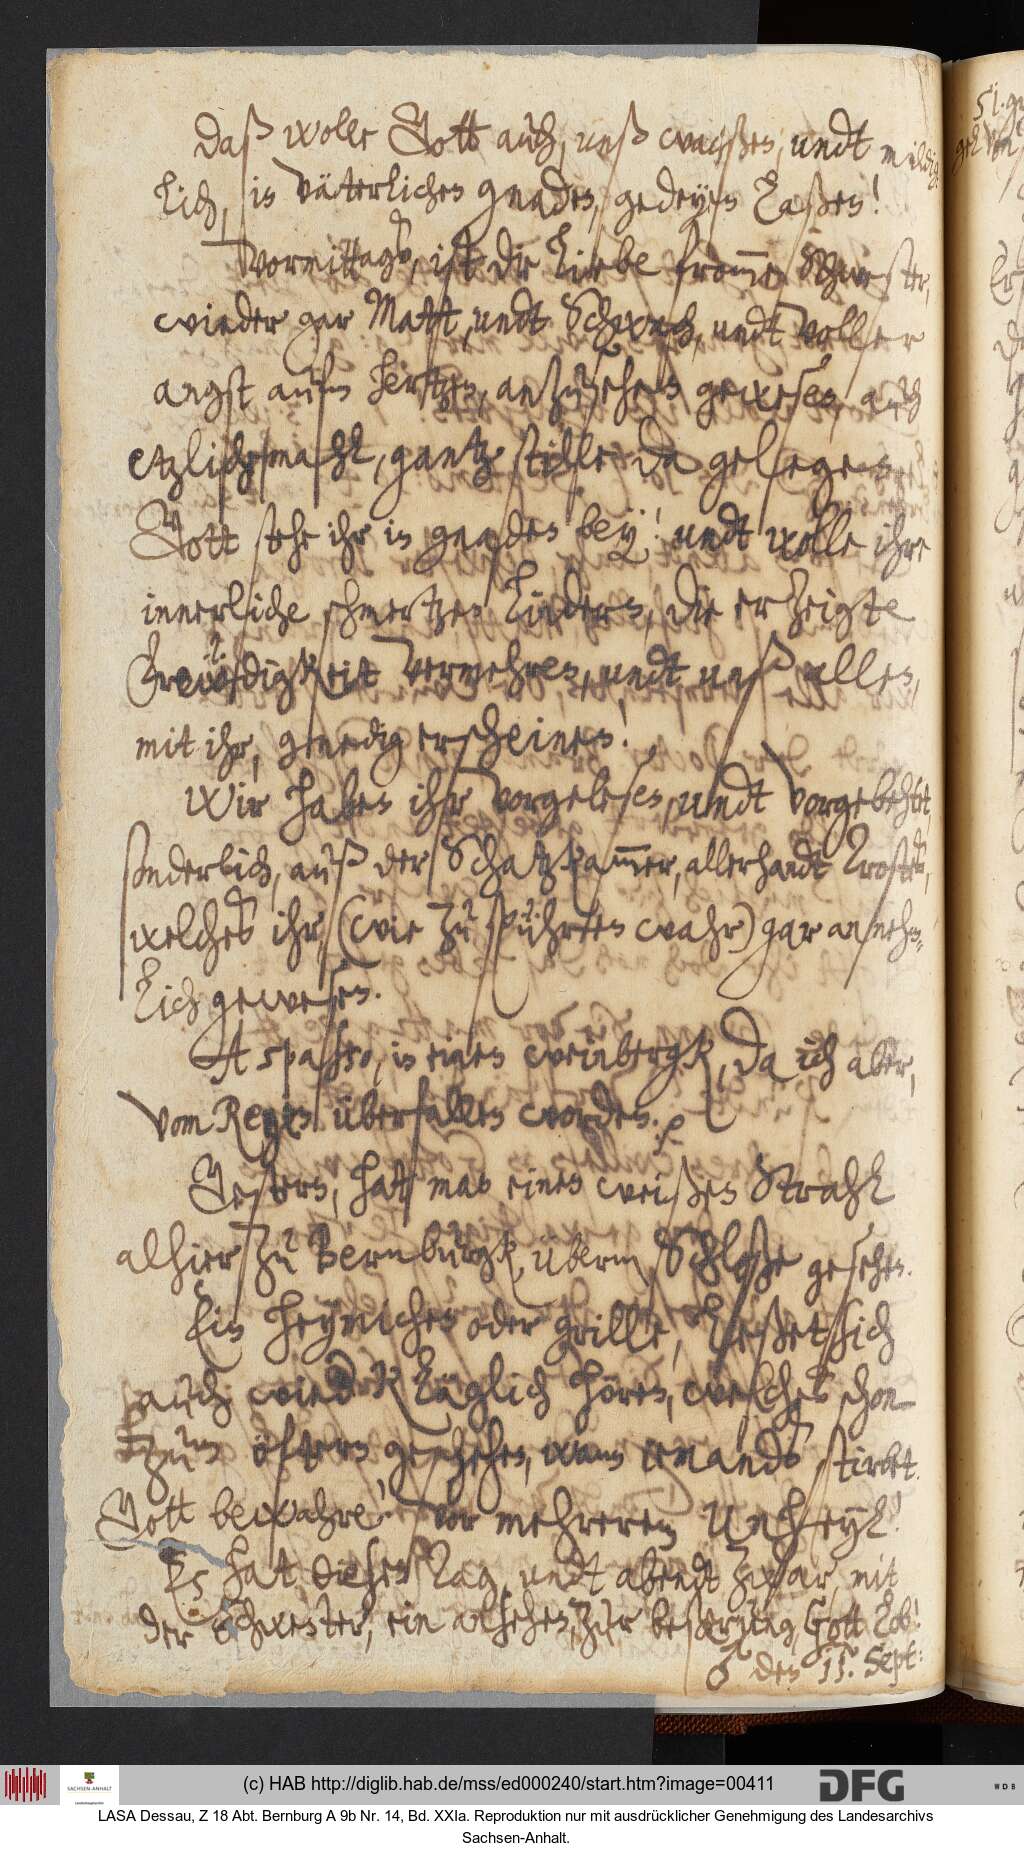 Daß wolle Gott auch, unß waisen, undt mildig-
lich, in väterlichen gnaden, gedeyen laßen!
Vormittags, ist die liebe fromme Schwester,
wieder gar Matt, undt Schwach, undt voller
angst aufm hertzen, anzusehen gewesen, auch
etzlichemahl, gantz stille da gelegen
Gott stehe ihr in gnaden bey! undt wolle ihre
innerliche schmertzen lindern, die erzeigte
Frewdigkeit vermehren, undt unß allen,
mit ihr, genedig erscheinen!
Wir haben ihr vorgelesen, undt vorgebehtet,
sonderlich, auß der Schatzkammer, allerhandt Trostes,
welches ihr (wie zu spühren wahr) gar annehm-
lich gewesen.
A spasso, in einen weinbergk, da ich aber,
vom Regen überfallen worden. 
Gestern, hat man einen weißen Strahl
alhier zu Bernburgk, überm Schloße gesehen.
Ein Heymichen oder grille, leßet sich
auch wieder kläglich hören, welches schon
zum öftern geschehen, wann iemands stirbet.
Gott bewahre! vor mehrerem Unheyl!
Es hat diesen Tag, undt abendt zwar, mit
der Schwester, ein ansehen, zur beßerung, Gott Lob!
♂ den 11. Sept:
(c) HAB http://diglib.hab.de/mss/ed000240/start.htm?image=00411
SACHSEN-ANHALT
DFG
WDB
LASA Dessau, Z 18 Abt. Bernburg A 9b Nr. 14, Bd. XXIa. Reproduktion nur mit ausdrücklicher Genehmigung des Landesarchivs
Sachsen-Anhalt.